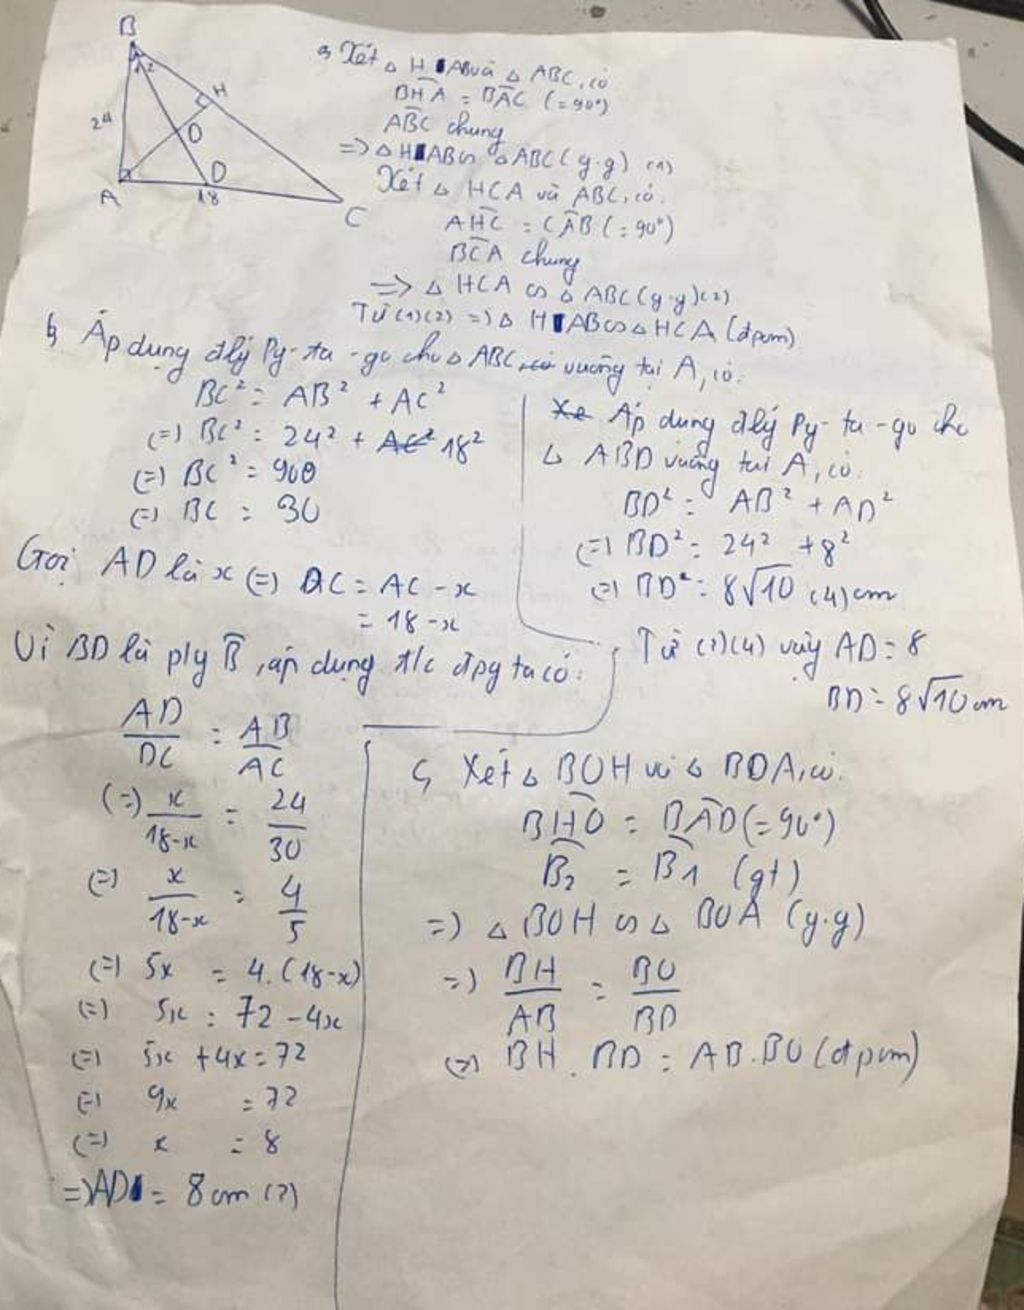 B
1 2
H
24
O
A
D
18
C
a, Xét △ HAB và △ ABC, có
BHA = BAC (= 90°)
ABC chung
=> △ HAB ∽ △ ABC (g.g) (1)
Xét △ HCA và ABC, có.
AHC = CAB (= 90°)
BCA chung
=> △ HCA ∽ △ ABC (g.g) (2)
Từ (1) (2) => △ HAB ∽ △ HCA (đpcm)
b, Áp dụng đlý Py-ta-go cho △ ABC, có vuông tại A, có:
BC² = AB² + AC²
(=) BC² = 24² + AC² 18²
(=) BC² = 900
(=) BC = 30
Gọi AD là x (=) DC = AC - x
= 18 - x
Vì BD là p/g B, áp dụng t/c đpg ta có:
AD/DC = AB/AC
(=) x/18-x = 24/30
(=) x/18-x = 4/5
(=) 5x = 4.(18-x)
(=) 5x = 72 - 4x
(=) 5x + 4x = 72
(=) 9x = 72
(=) x = 8
=> AD = 8 cm (3)
Xe Áp dụng đlý Py-ta-go cho
△ ABD vuông tại A, có.
BD² = AB² + AD²
(=) BD² = 24² + 8²
(=) BD² = 8√10 (4) cm
Từ (3) (4) vậy AD = 8
BD = 8√10 cm
c, Xét △ BOH và △ BDA, có.
BHO = BAD (= 90°)
B2 = B1 (gt)
=> △ BOH ∽ △ BDA (g.g)
=> BH/AB = BO/BD
(=) BH . BD = AB . BO (đpcm)